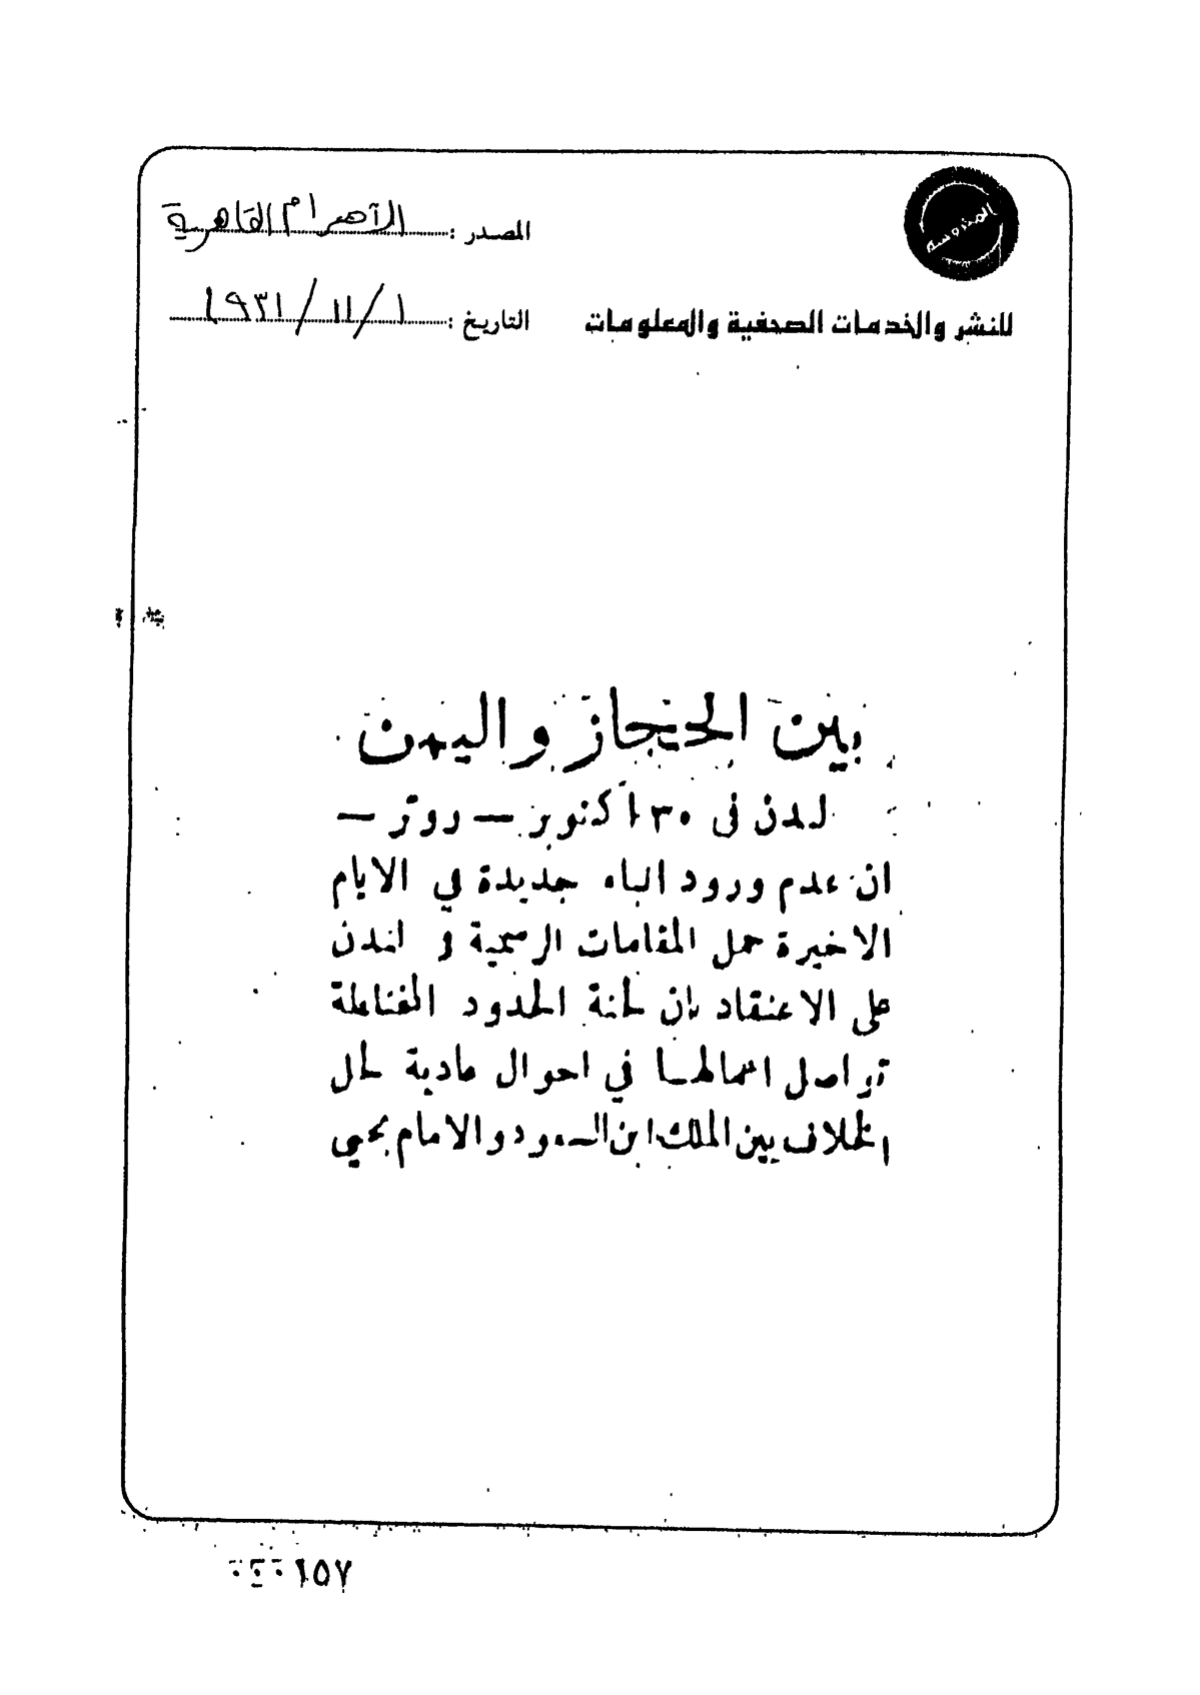 المحروسة
المصدر : الأهرام القاهرية
للنشر والخدمات الصحفية والمعلومات
التاريخ : ١ / ١١ / ١٩٣١
بين الحجاز واليمن
لندن في ٣٠ اكتوبر — روتر —
ان عدم ورود انباء جديدة في الايام
الاخيرة حمل المقامات الرسمية في لندن
على الاعتقاد بان لجنة الحدود المختلطة
تواصل اعمالها في احوال عادية لحل
الخلاف بين الملك ابن السعود والامام يحيى
١٥٧